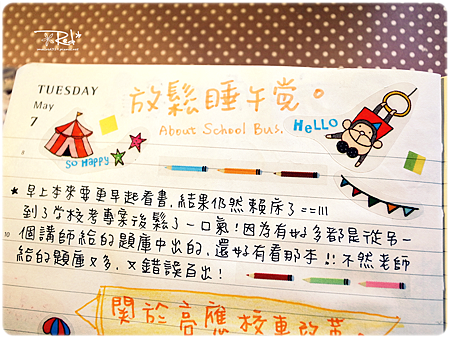 TUESDAY
May
7
放鬆睡午觉。
About School Bus.
HeLLo
So Happy
★早上本來要更早起看書,結果仍然賴床了==|||
到了学校考專案後鬆了一口氣!因為有好多都是從另一
10
個講師給的題庫中出的,還好有看那本!!不然老師
給的題庫又多,又錯誤百出!
關於高應校車改革.